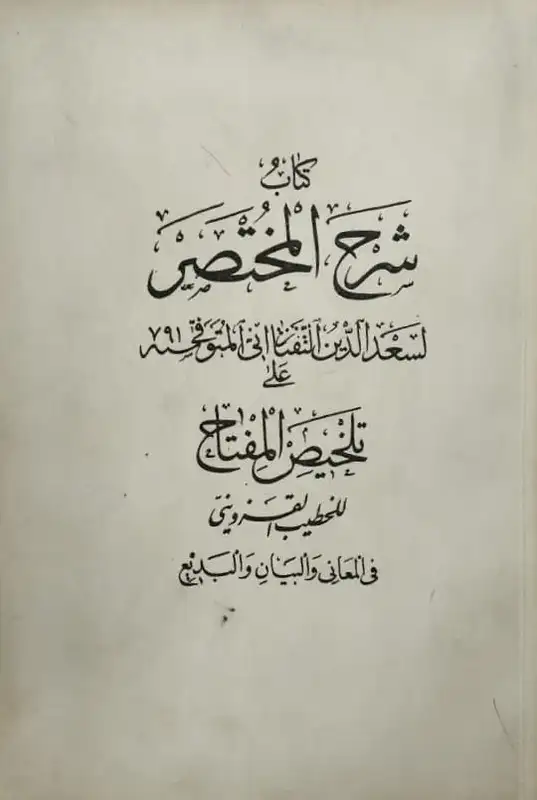 كتاب
شرح المختصر
لسعد الدين التفتازاني المتوفى سنة ٧٩١
على
تلخيص المفتاح
للخطيب القزويني
في المعاني والبيان والبديع